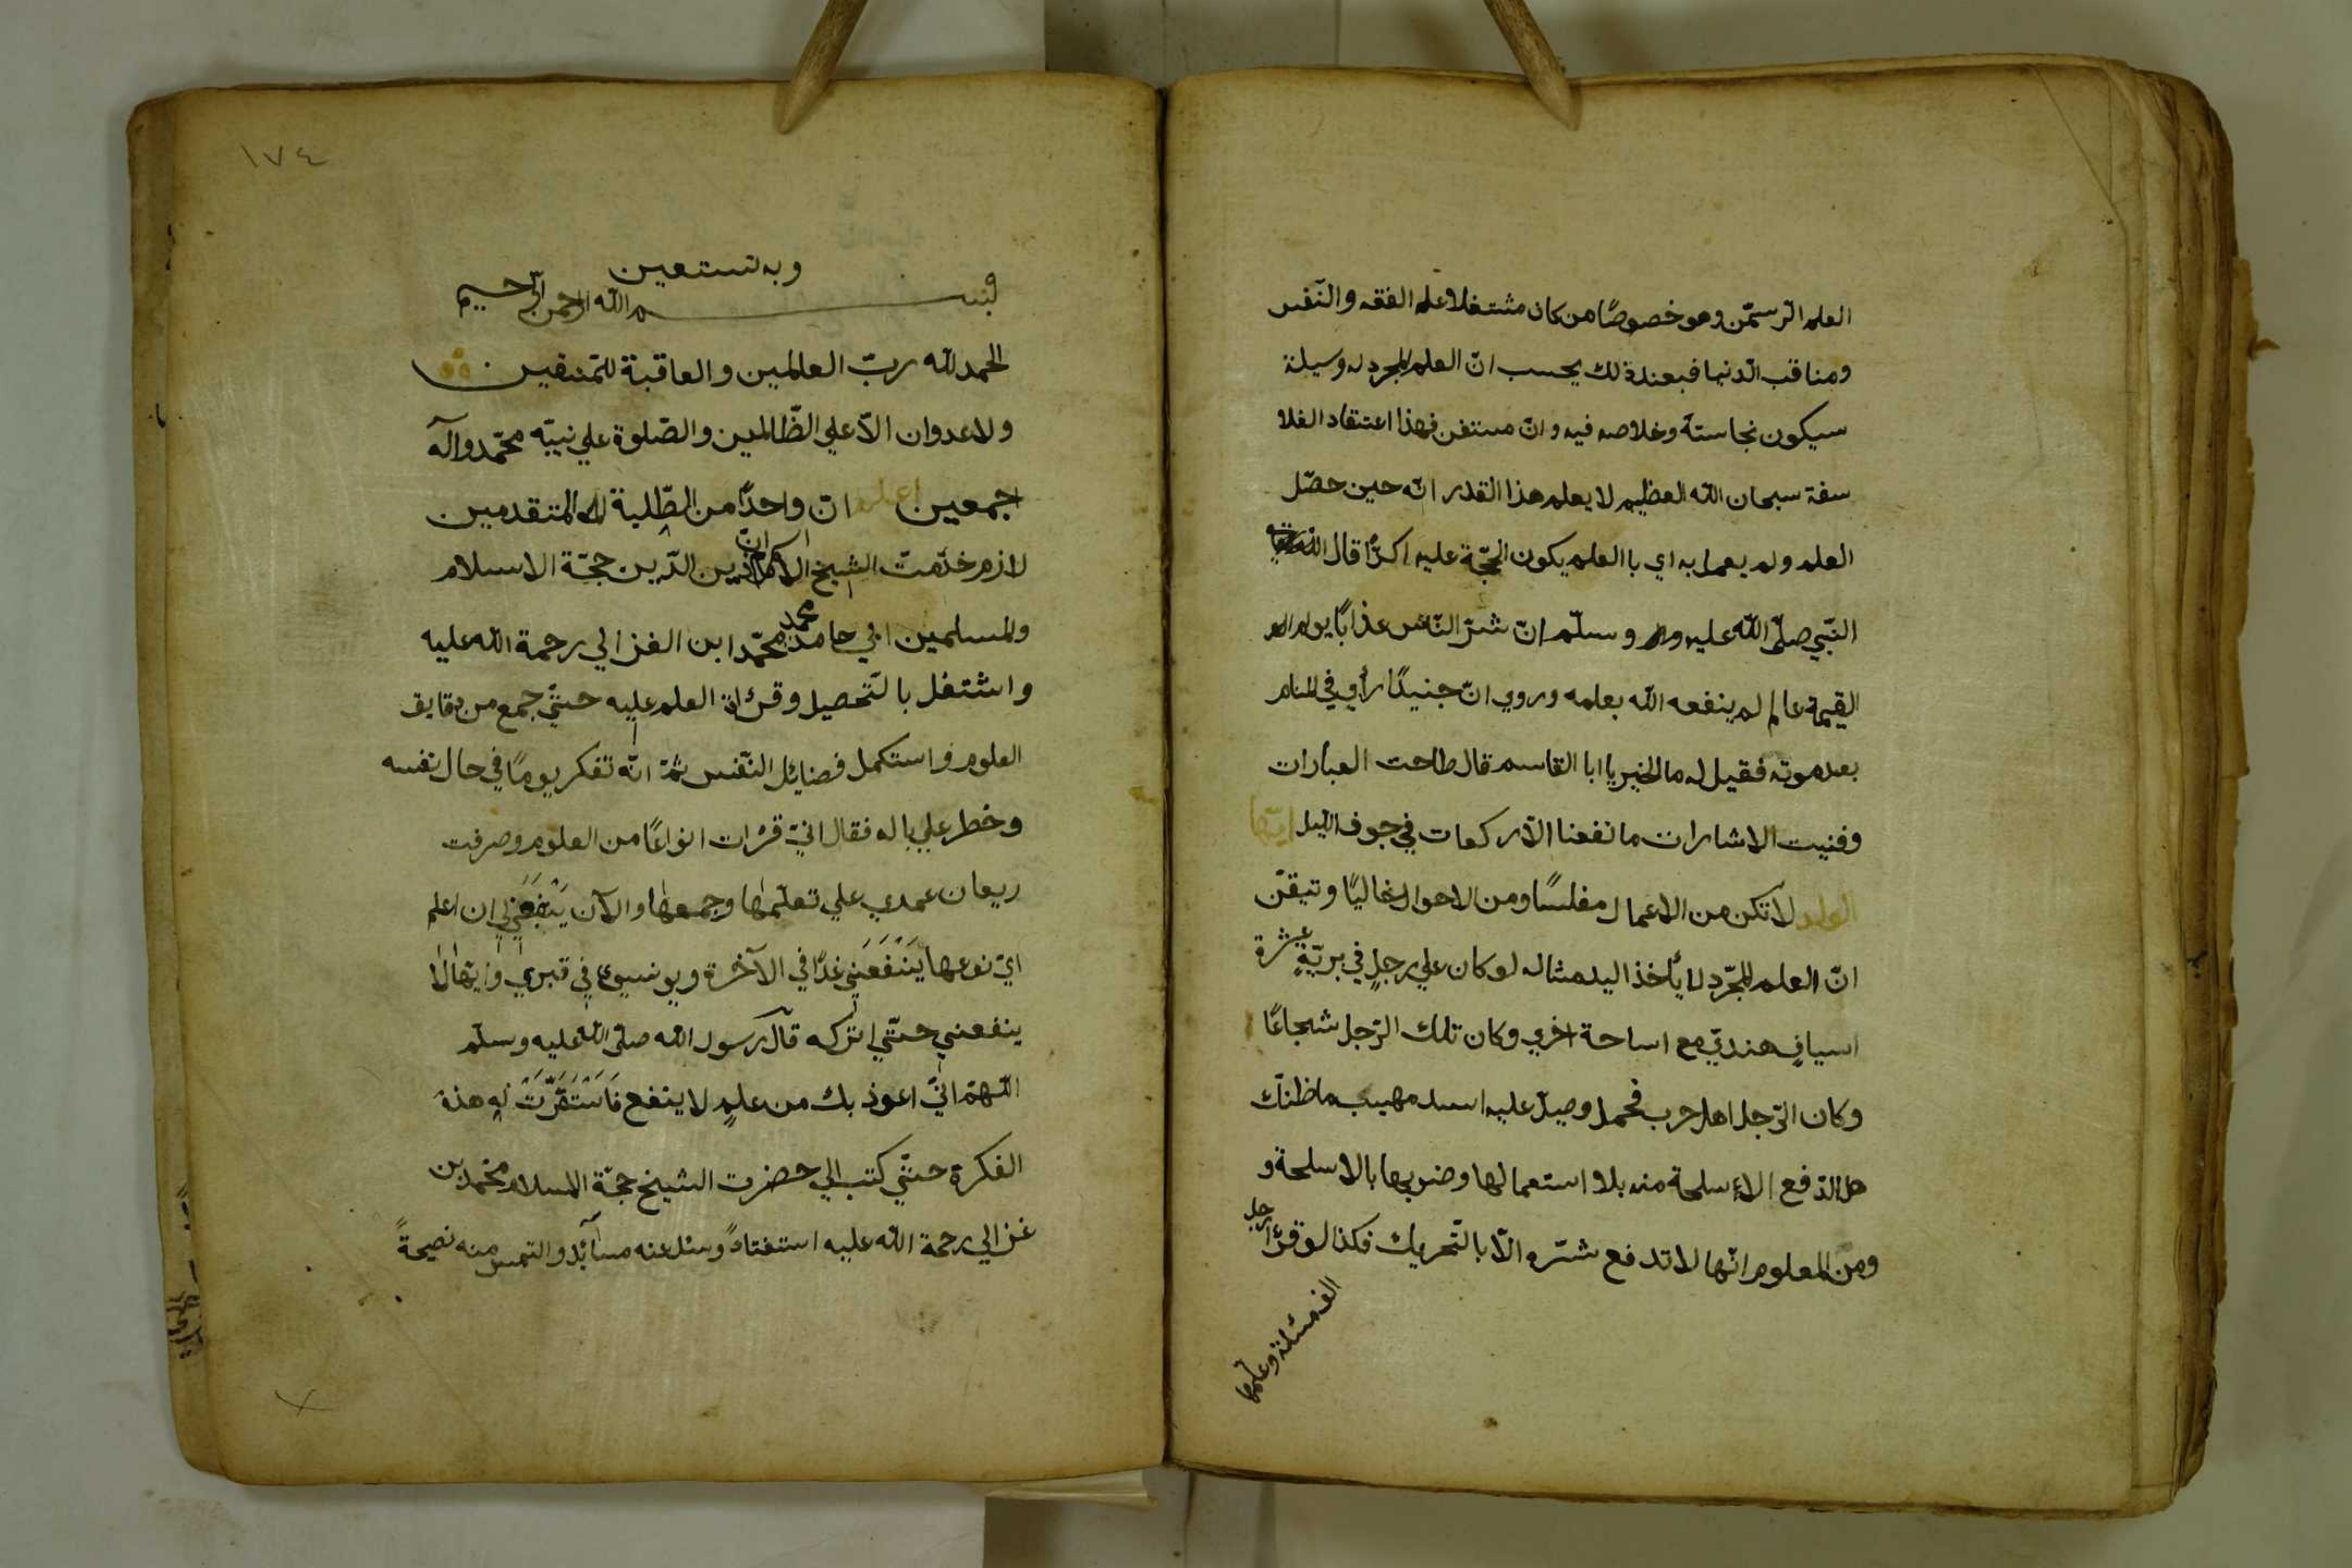 العلم الرسمّن وهو خصوصًا من كان مشتغلا وعلم الفقه والنّفس
ومناقب الدنيا فبعندة لك يحسب انّ العلم المجرد له وسيلة
سيكون نجاستة وخلاصه فيه وانّ مستغن فهذا اعتقاد الفلا
سفة سبحان الله العظيم لا يعلم هذا القدر انّه حين حصّل
العلم ولم يعمل به اي با العلم يكون الحجّة عليه اكدًا قال
النّبي صلّى الله عليه وسلّم انّ شرّ النّاس عذابًا يوم
القيمة عالم لم ينفعه الله بعلمه وروي انّ جنيدًا رأي في المنام
بعد موته فقيل له ما الخبر يا ابا القاسم قال طاحت العبارات
وفنيت الاشارات ما نفعنا الّا ركعات في جوف الليل ايّها
الولد لا تكن من الاعمال مفلسًا ومن الاحوال خاليًا وتيقّن
انّ العلم المجرّد لا يأخذ اليد مثاله لو كان علي رجلٍ في بريّةٍ عشرة
اسيافٍ هنديّ مع اساحة اخري وكان تلك الرّجل شجاعًا
وكان الرّجل اهل حرب فحمل وصيل عليه اسد مهيب ما ظنّك
هل الدّفع الاسلحة منه بلا استعمالها وضربها بالاسلحة و
ومن المعلوم انّها لا تدفع شرّه الّا بالتّحريك فكذا لو قرأ رجل
الف مسئلة وعلّمها
١٧٤
وبه نستعين
بسم الله الرحمن الرّحيم
الحمد لله ربّ العالمين والعاقبة للمتّقين
ولا عدوان الّا علي الظّالمين والصّلوة علي نبيّه محمّد وآله
اجمعين اعلم انّ واحدًا من الطّلبة المتقدمين
لازم خدمت الشيخ الامام زين الدّين حجّة الاسلام
والمسلمين ابي حامد محمد محمّد ابن الغزالي رحمة الله عليه
واشتغل بالتّحصيل وقرائة العلم عليه حتّي جمع من دقايق
العلوم واستكمل فضائل النّفس ثمّ انّه تفكر يومًا في حال نفسه
وخطر علي باله فقال انّي قرات انواعًا من العلوم وصرفت
ريعان عمري علي تعلّمها وجمعها والآن ينبغي لي ان اعلم
ايّ نوعها يَنْفَعَني غدًا في الآخرة ويونسوني في قبري وايّها لا
ينفعني حتّي اتركه قال رسول الله صلّى الله عليه وسلّم
اللّهمّ انّي اعوذ بك من علمٍ لا ينفع فَاسْتَقَرَّتْ له هذة
الفكرة حتّي كتب الي حضرت الشيخ حجّة الاسلام محمّد بن
غزالي رحمة الله عليه استفتاءً وسئل عنه مسآئل والتمس منه نصيحةً